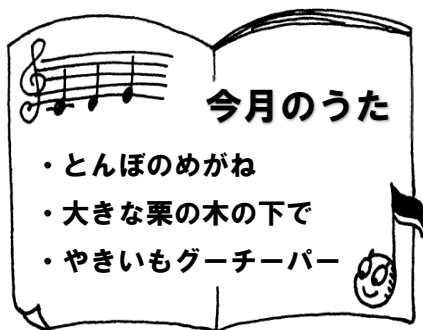 今月のうた
・とんぼのめがね
・大きな栗の木の下で
・やきいもグーチーパー